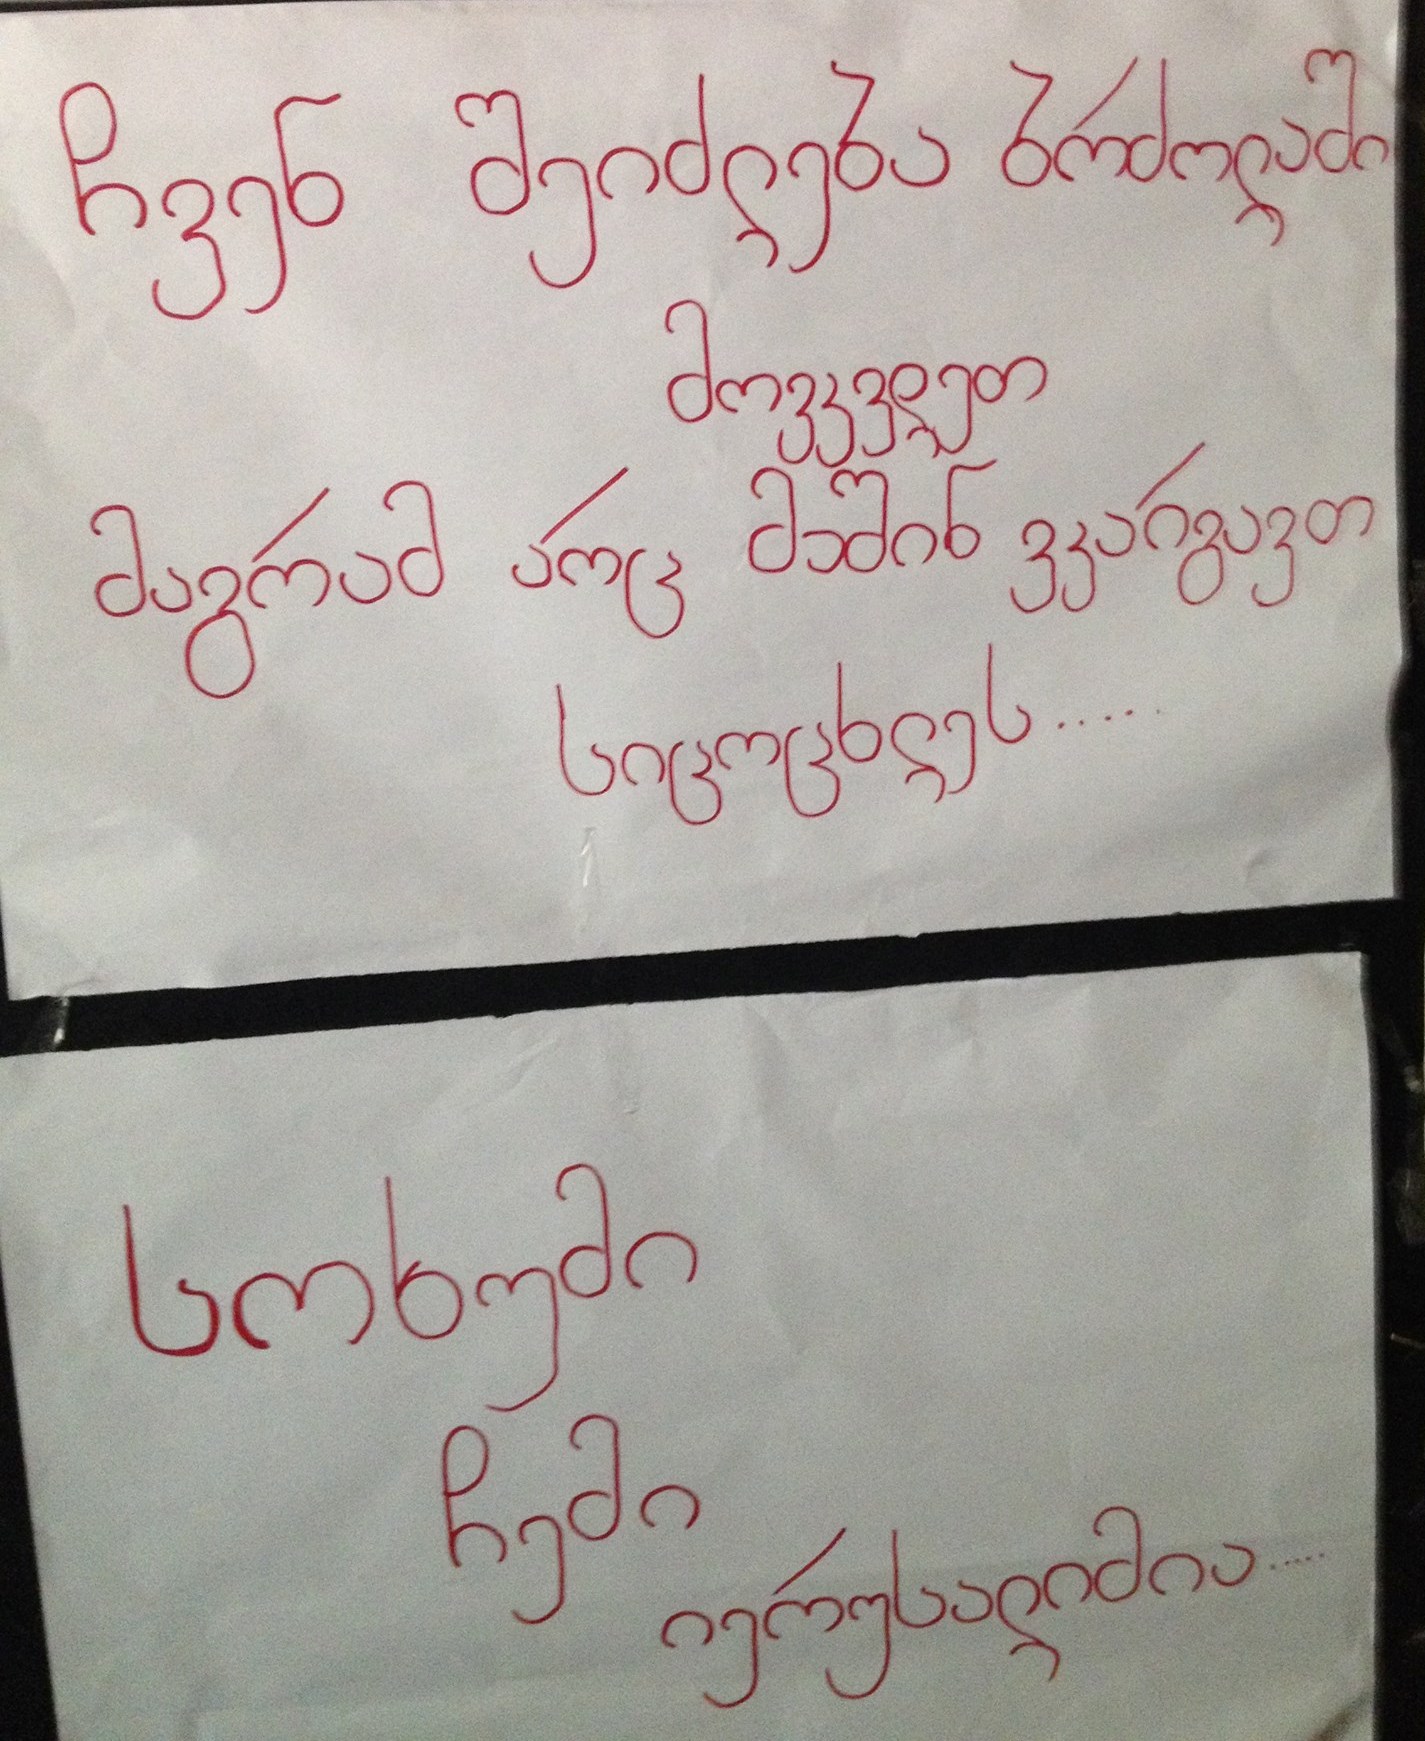 ჩვენ შეიძლება ბრძოლაში
მოვკვდეთ
მაგრამ არც მაშინ ვკარგავთ
სიცოცხლეს.....
სოხუმი
ჩემი
იერუსალიმია.....